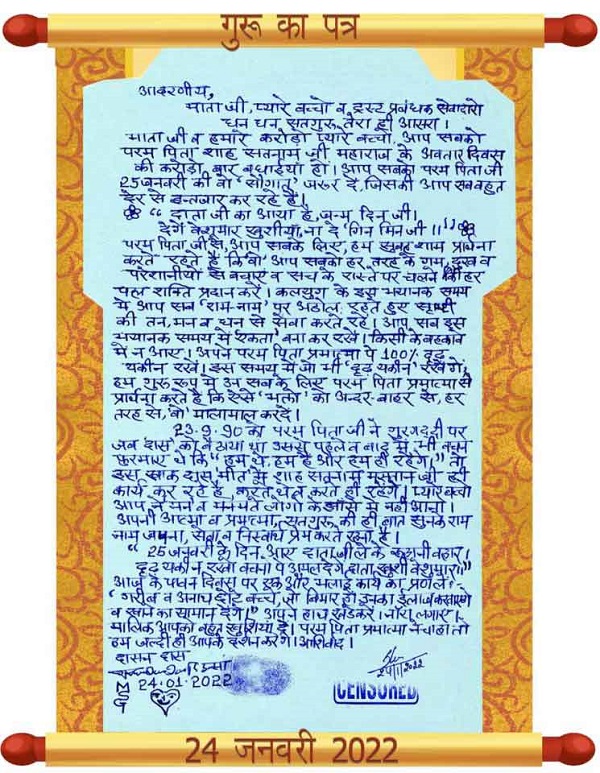 गुरू का पत्र
आदरणीय,
माता जी, प्यारे बच्चो व ट्रस्ट प्रबंधक सेवादारो
धन धन सतगुरू तेरा ही आसरा।
माता जी व हमारे करोड़ों प्यारे बच्चो, आप सबको
परम पिता शाह सतनाम जी महाराज के अवतार दिवस
की करोड़ों बार बधाईयां हो। आप सबको परम पिता जी
25 जनवरी की वो 'सौगात' जरूर दें, जिसकी आप सब बहुत
देर से इन्तजार कर रहे हैं।
"दाता जी का आया है, जन्म दिन जी।
देंगे बेशुमार खुशीयां, ना दे 'गिन मिन जी॥"
परम पिता जी से, आप सबके लिए, हम सुबह शाम प्रार्थना
करते रहते हैं कि 'वो' आप सबको हर तरह के गम, दुख व
परेशानीयों से बचाए व सच के रास्ते पर चलने की हर
पल शक्ति प्रदान करें। कलयुग के इस भयानक समय
में आप सब 'राम-नाम' पर अडोल रहते हुए सृष्टी
की तन, मन व धन से सेवा करते रहें। आप सब इस
भयानक समय में एकता बना कर रखें। किसी के बहकावे
में न आए। अपने परम पिता प्रमात्मा पे 100% दृढ़
यकीन रखें। इस समय में जो भी 'दृढ़ यकीन' रखेंगे,
हम गुरू रूप में उन सब के लिए परम पिता प्रमात्मा से
प्रार्थना करते हैं कि ऐसे 'भक्तों' को अन्दर-बाहर से, हर
तरह से, 'वो' मालामाल करदें।
23.9.90 को परम पिता जी ने गुरगद्दी पर
जब दास को बैठाया था उससे पहले व बाद में भी वचन
फरमाए थे कि "हम थे, हम हैं और हम ही रहेंगे।" तो
इस खाक दास, मीत में शाह सतनाम, मस्ताना जी ही
कार्य कर रहे हैं, करते थे व करते ही रहेंगे। प्यारे बच्चो
आप ने मन व मनमते लोगों के झांसे में नहीं आना।
अपनी आत्मा व प्रमात्मा, सतगुरू की ही बात सुनके राम
नाम जपना, सेवा व निस्वार्थ प्रेम करते रहना है।
"25 जनवरी के दिन आए दाता, जी लेके रूहानी बहार।
दृढ़ यकीन रखो वचनों पे अमल, देंगे दाता खुशी बेशुमार॥"
आज के पवन दिवस पर एक और भलाई कार्य का प्रण लें:-
"गरीब व अनाथ छोटे बच्चे, जो बिमार हों, उनका ईलाज करवाएंगे
व खाने का सामान देंगे।" अपने हाथ खड़े करें। नारा लगाएं।
मालिक आपको बहुत खुशियां दे। परम पिता प्रमात्मा ने चाहा तो
हम जल्दी ही आपके दर्शन करेंगे। आशिर्वाद।
दासन दास
24.01.2022
24/1/2022
MSG
CENSORED
24 जनवरी 2022